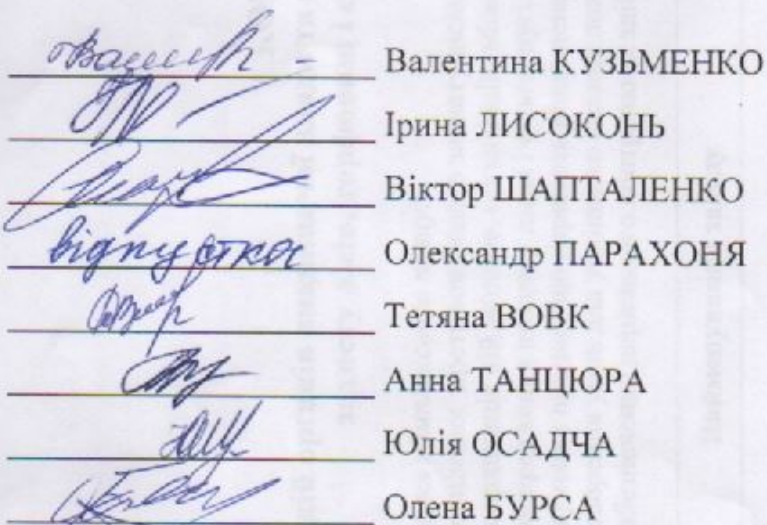 Валентина КУЗЬМЕНКО
Ірина ЛИСОКОНЬ
Віктор ШАПТАЛЕНКО
відпустка Олександр ПАРАХОНЯ
Тетяна ВОВК
Анна ТАНЦЮРА
Юлія ОСАДЧА
Олена БУРСА